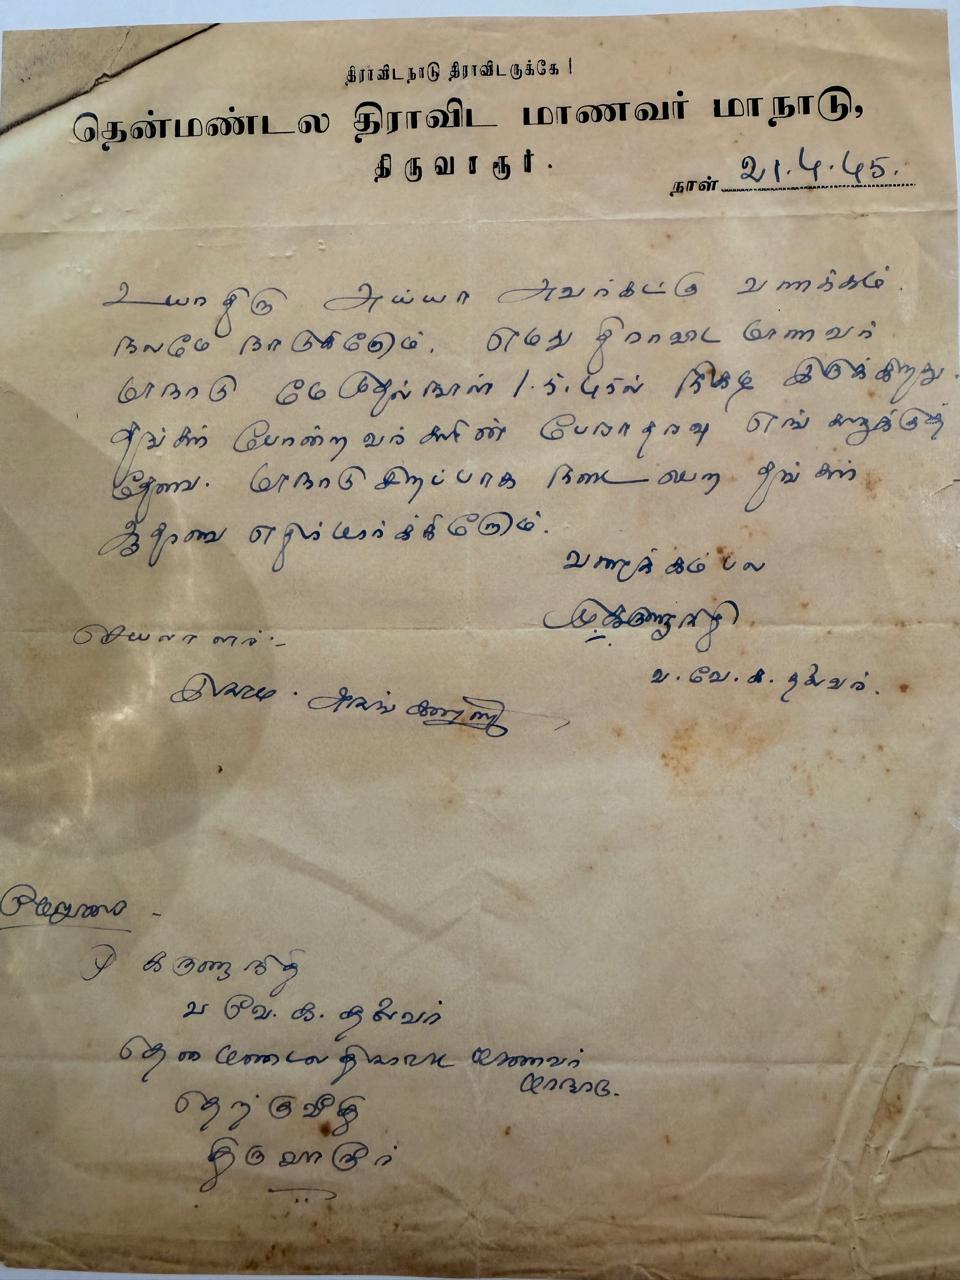 திராவிடநாடு திராவிடருக்கே!
தென்மண்டல திராவிட மாணவர் மாநாடு,
திருவாரூர்.
நாள் 21.4.45.
உயர்திரு அய்யா அவர்கட்கு வணக்கம்.
நலமே நாடுகிறோம். எமது திராவிட மாணவர்
மாநாடு மே முதல் நாள் 1.5.45ல் நிகழ இருக்கிறது.
தங்கள் போன்றவர்களின் பேராதரவு எங்களுக்குத்
தேவை. மாநாடு சிறப்பாக நடைபெற தங்கள்
ஆதரவை எதிர்பார்க்கிறோம்.
வணக்கம் பல
மு. கருணாநிதி
வ. வே. க. தலைவர்.
செயலாளர்:-
முழுவிலாசம் -
மு கருணாநிதி
வ வே. க. தலைவர்
தென்மண்டல திராவிட மாணவர்
மாநாடு.
தெற்குவீதி
திருவாரூர்